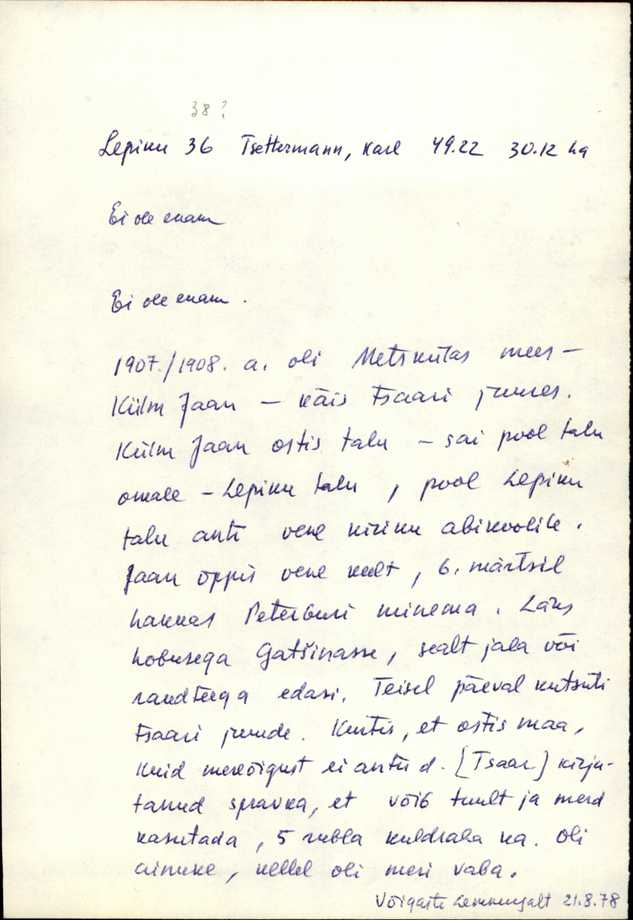 38?
Lepiku 36 Tsettermann, Karl 49.22 30.12 ha
Ei ole enam
Ei ole enam.
1907./1908. a. oli Metskülas mees –
Külm Jaan – käis tsaari juures.
Külm Jaan ostis talu – sai pool talu
omale – Lepiku talu, pool Lepiku
talu anti vene kiriku abikoolile.
Jaan õppis vene keelt, 6. märtsil
hakkas Peterburi minema. Läks
hobusega Gatšinasse, sealt jala või
raudteega edasi. Teisel päeval kutsuti
tsaari juurde. Kurtis, et ostis maa,
kuid mereõigust ei antud. [Tsaar] kirju-
tanud spravka, et võib tuult ja merd
kasutada, 5 rubla kuldraha ka. Oli
ainuke, kellel oli meri vaba.
Võigaste 21.8.78